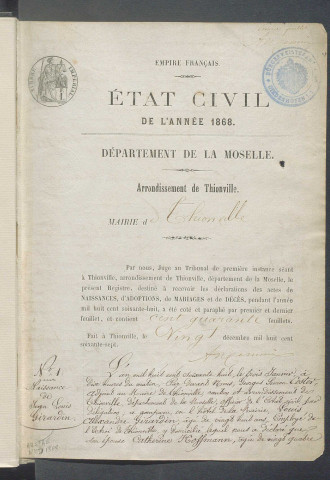 EMPIRE FRANÇAIS
ÉTAT CIVIL
DE L'ANNÉE 1868.
DÉPARTEMENT DE LA MOSELLE.
Arrondissement de Thionville.
MAIRIE d e Thionville
Par nous, Juge au Tribunal de première instance séant
à Thionville, arrondissement de Thionville, département de la Moselle,
le présent Registre, destiné à recevoir les déclarations des actes de
NAISSANCES, d'ADOPTIONS, de MARIAGES et de DÉCÈS, pendant l'année
mil huit cent soixante-huit, a été coté et paraphé par premier et dernier
feuillet, et contient Cent quarante feuillets.
Fait à Thionville, le Vingt décembre mil huit cent
soixante-sept.
N° 1
Naissance
de
Louis
Girardin
L'an mil huit cent soixante huit, le trois Janvier, à
dix heures du matin, Par devant Nous,
adjoint au Maire de Thionville, canton et arrondissement de
Thionville, Département de la Moselle, officier de l'État civil par
délégation, a comparu, en l'hôtel de la Mairie, Louis
Alexandre Girardin, âgé de vingt huit ans, Employé de
de Thionville, y domicilié, lequel nous a déclaré que
son épouse Catherine Hoffmann, âgée de vingt quatre